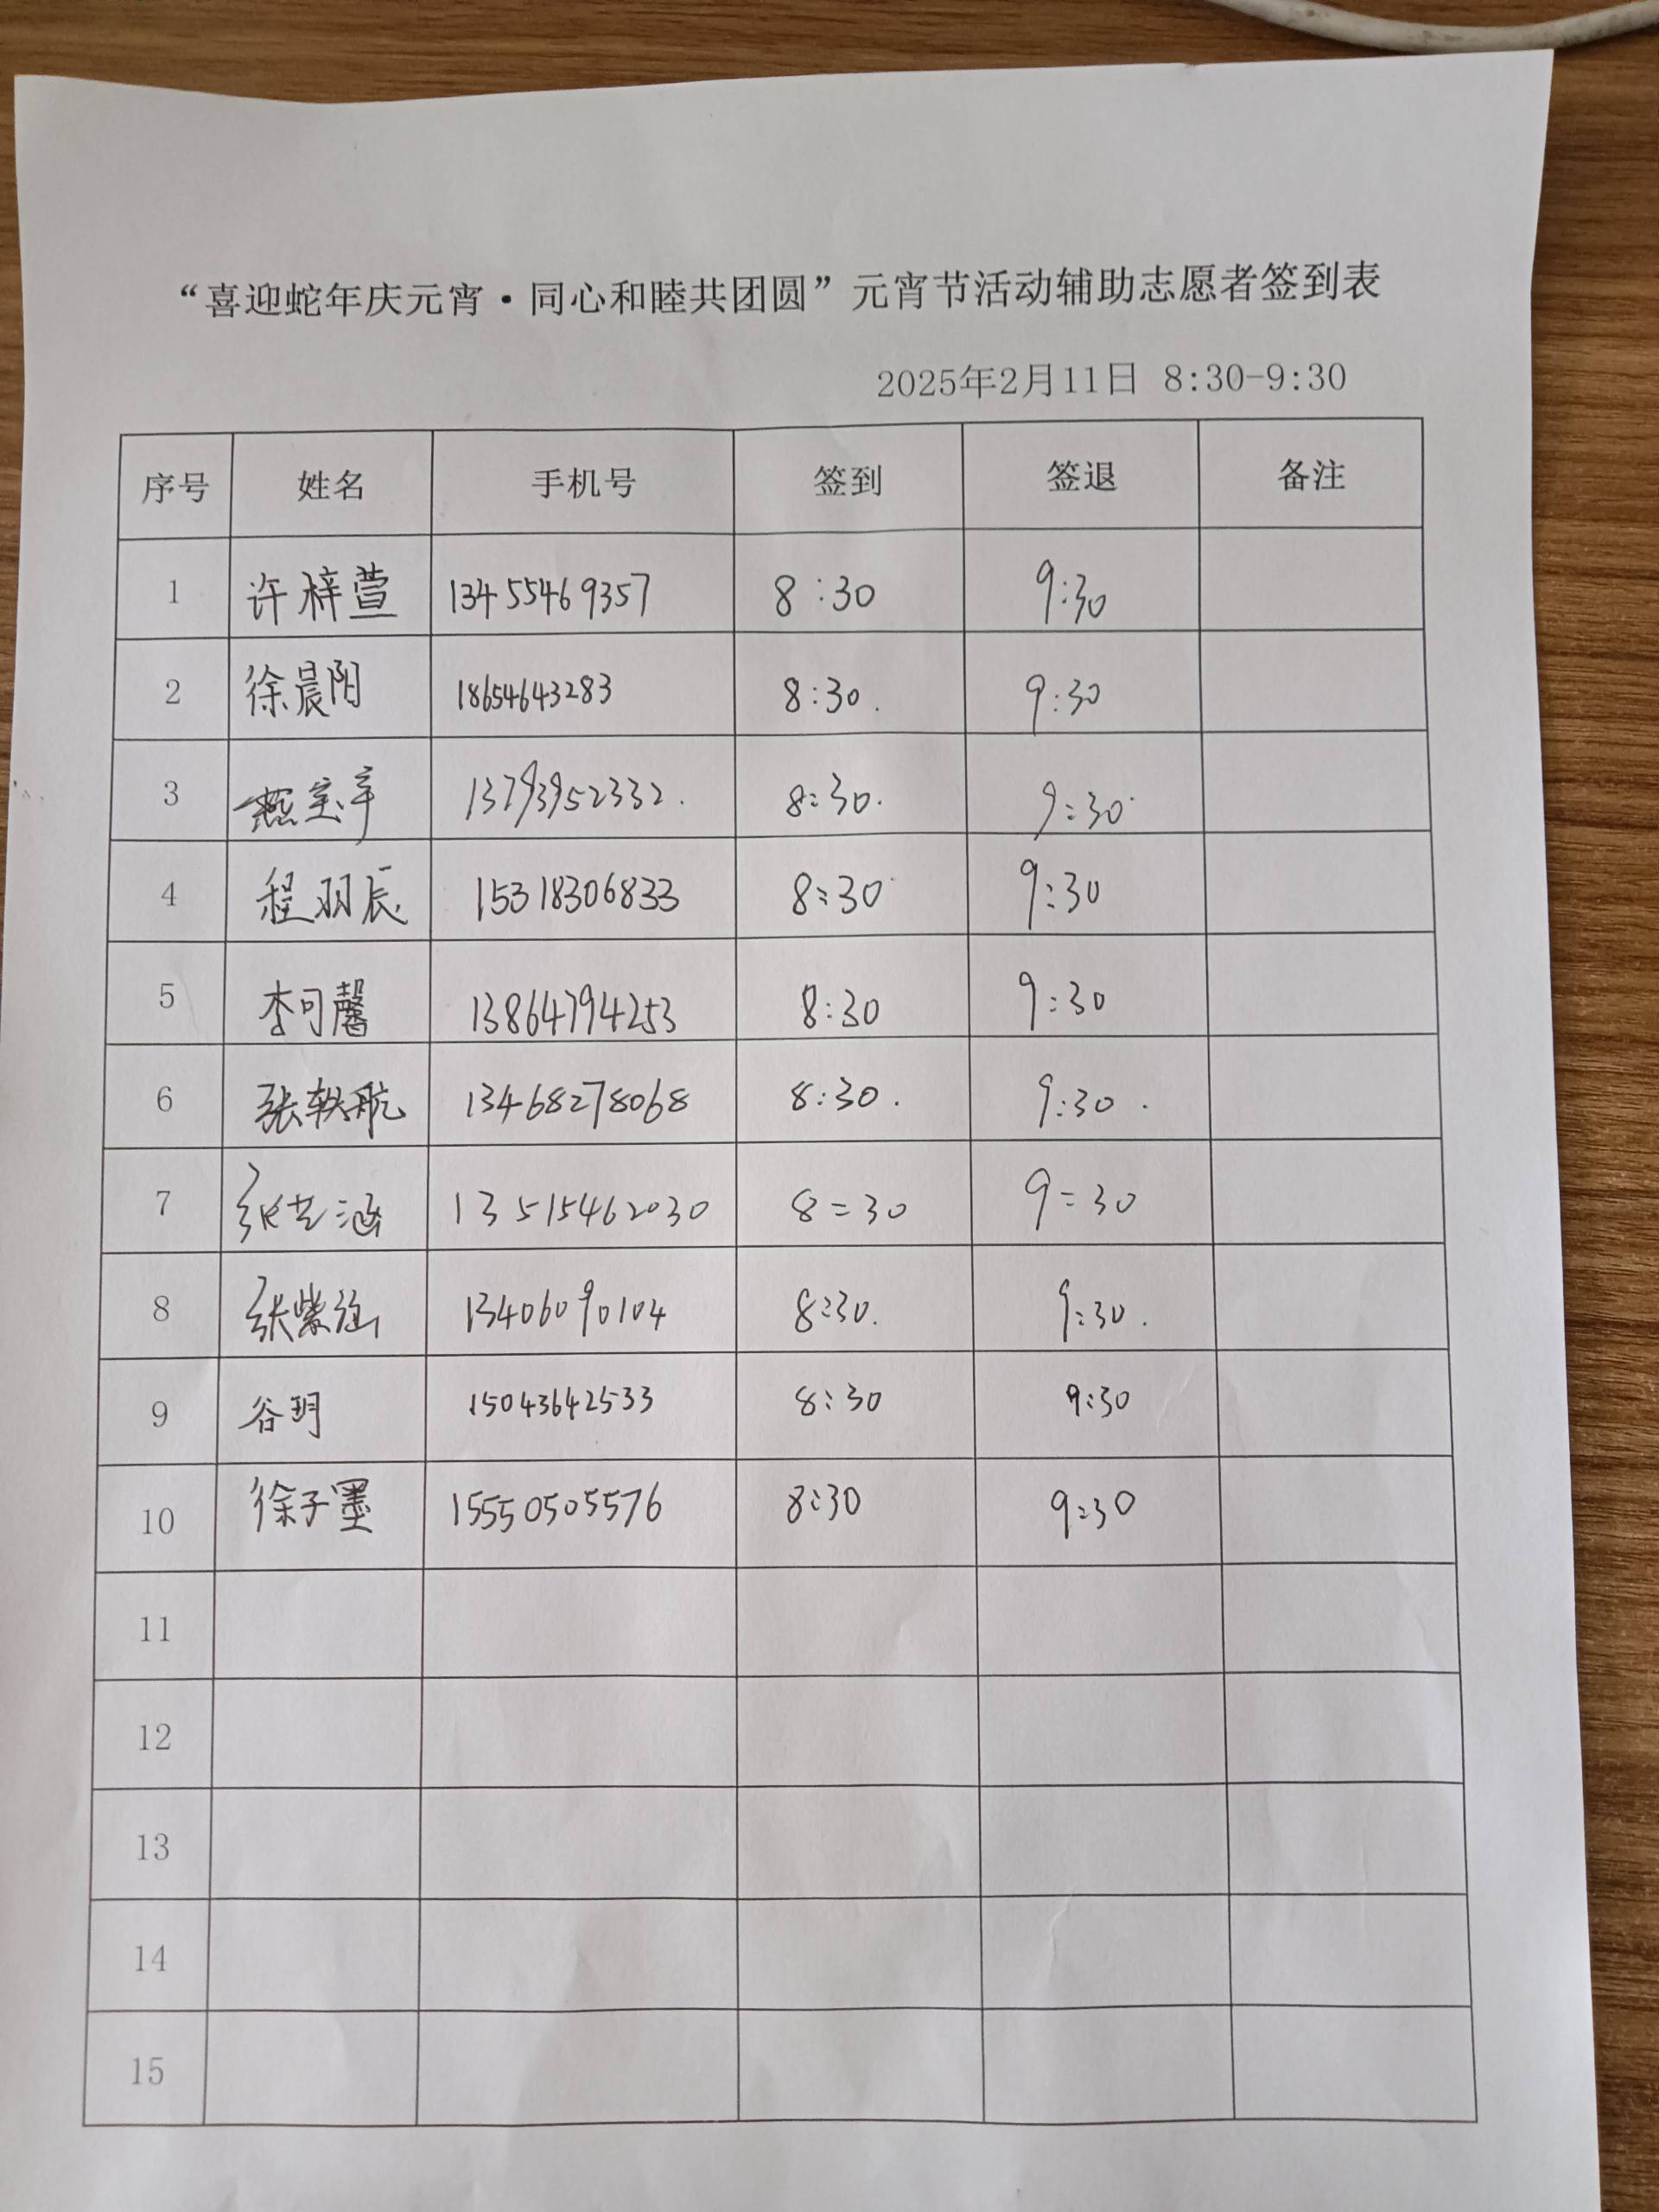 “喜迎蛇年庆元宵·同心和睦共团圆”元宵节活动辅助志愿者签到表
2025年2月11日 8:30-9:30
序号 姓名 手机号 签到 签退 备注
1 许梓萱 13455469357 8:30 9:30
2 徐晨阳 18654643283 8:30. 9:30
3 13793952332. 8:30. 9:30.
4 程羽辰 15318306833 8:30 9:30
5 李可馨 13864794253 8:30 9:30
6 张轶航 13468278068 8:30. 9:30.
7 张艺涵 13515462030 8:30 9:30
8 张紫涵 13406090104 8:30. 9:30.
9 谷玥 15043642533 8:30 9:30
10 徐子墨 15550505576 8:30 9:30
11
12
13
14
15